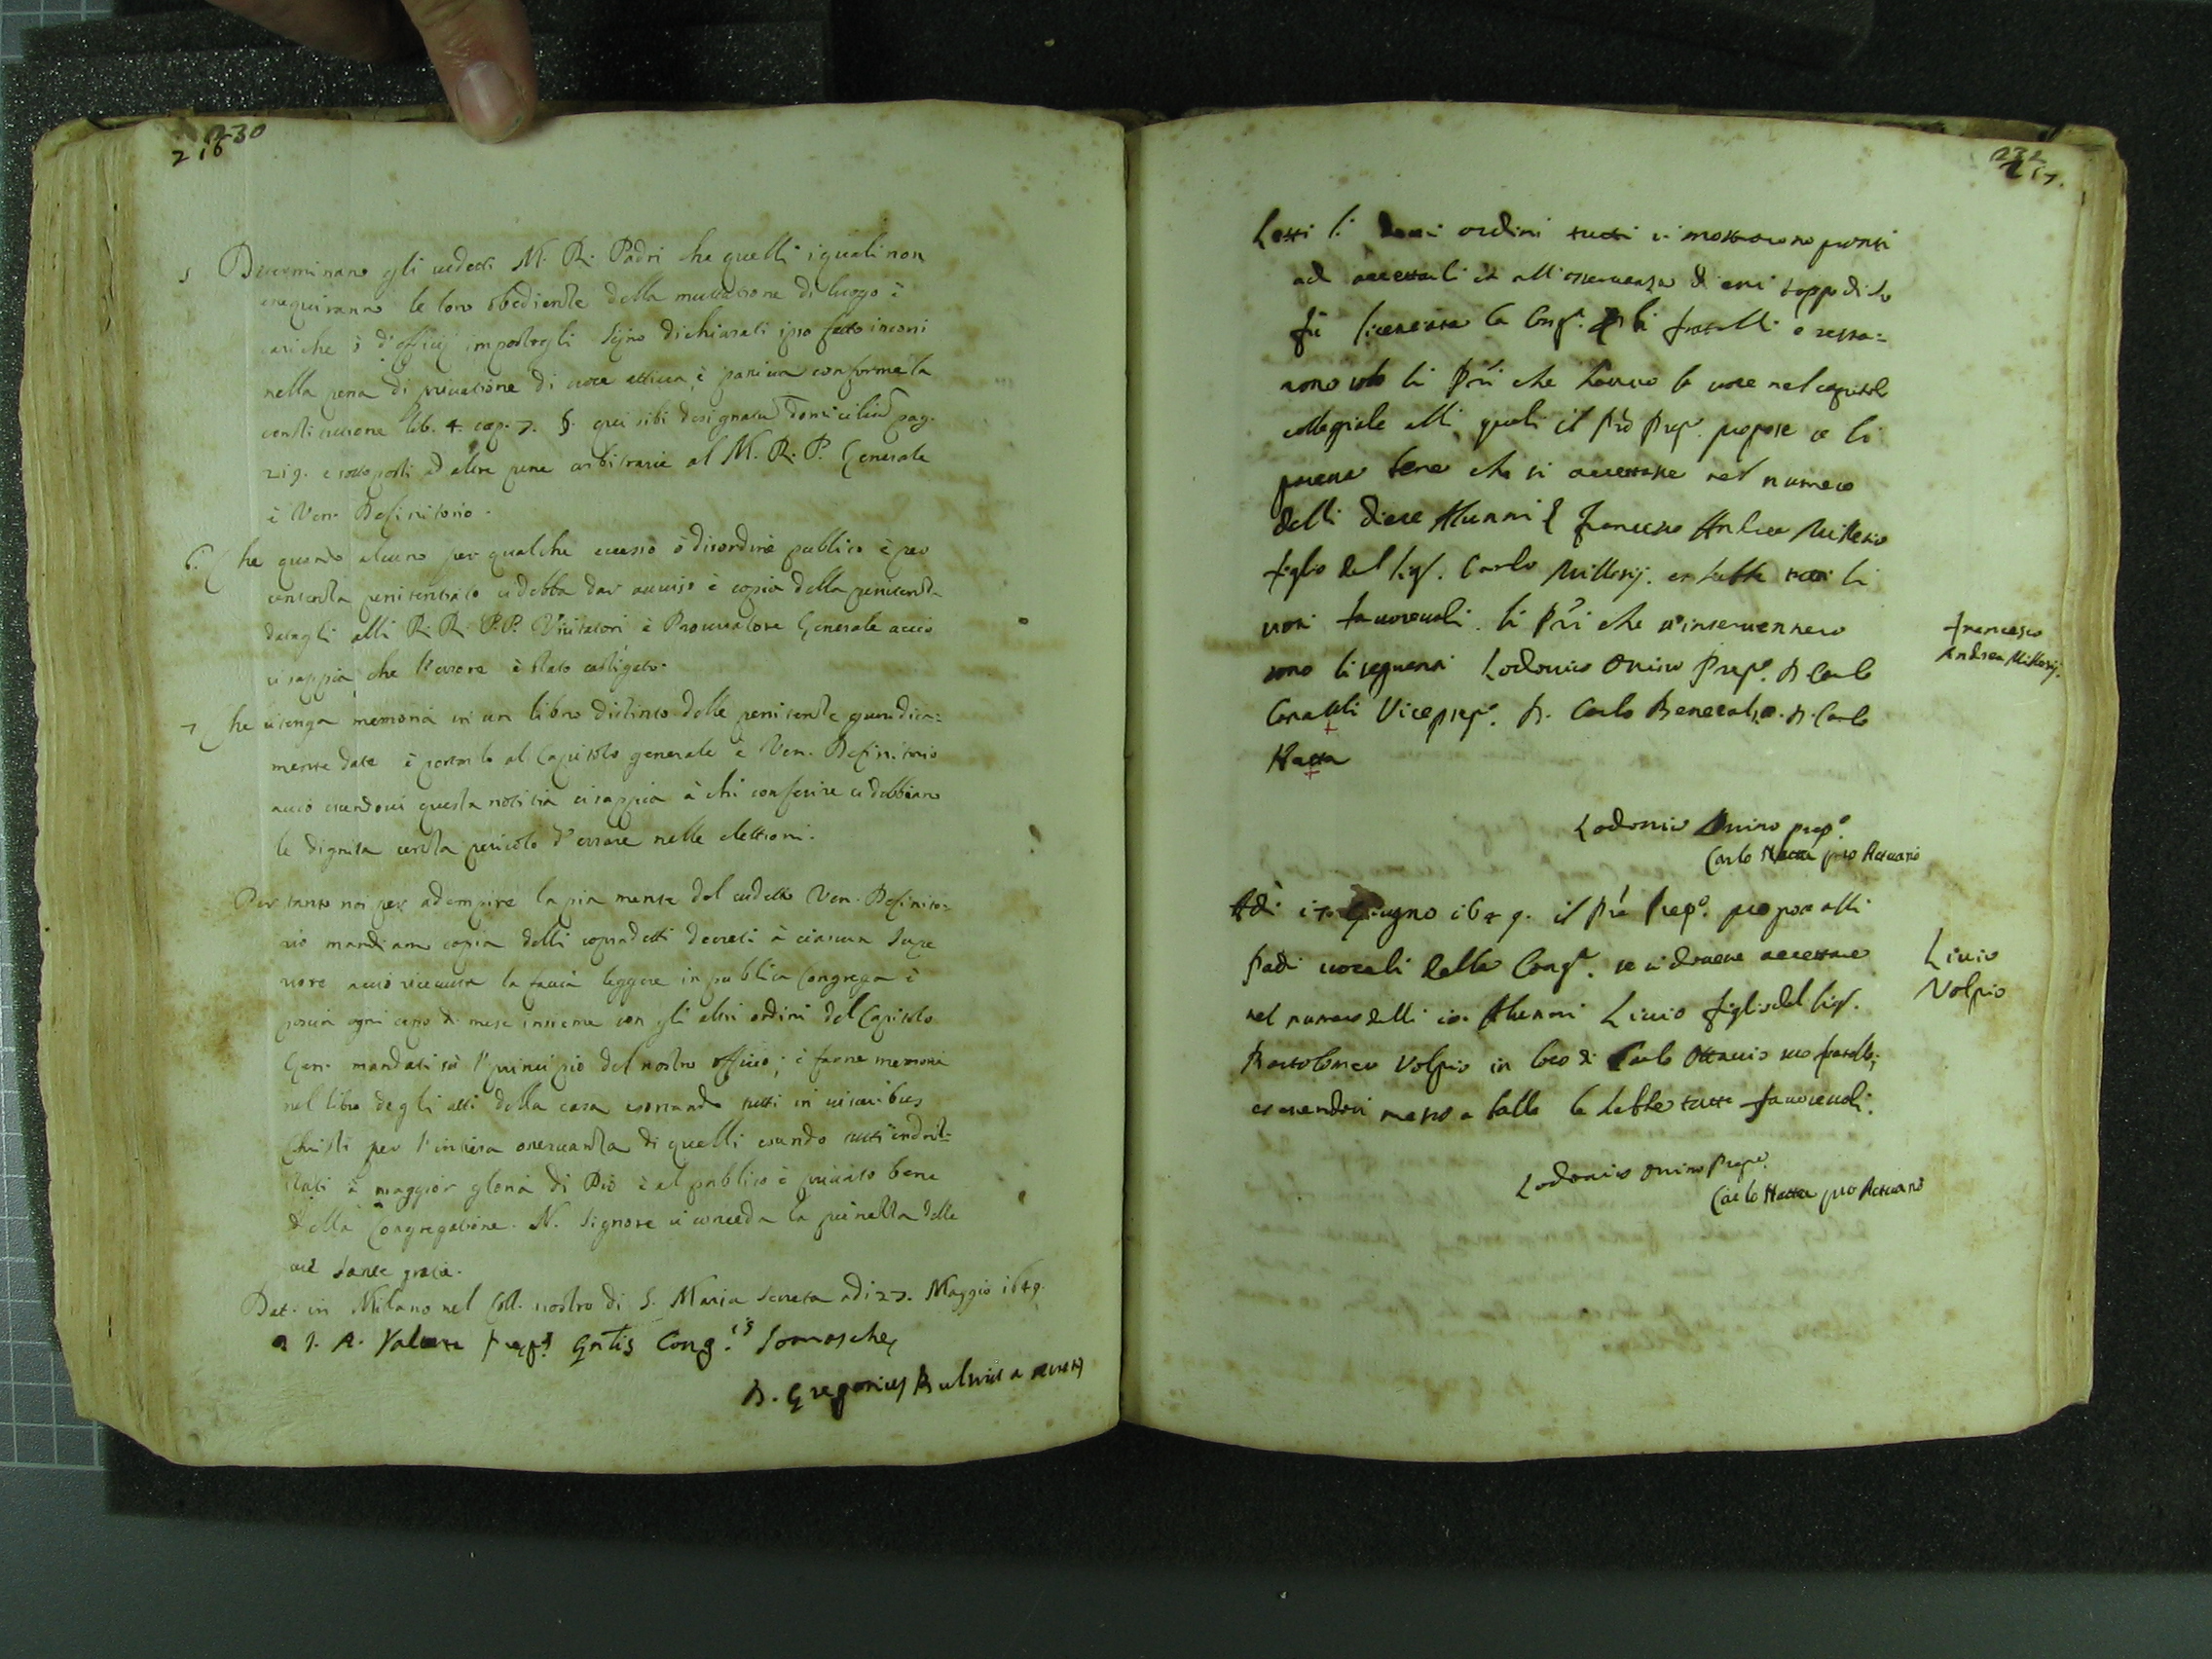 230
216
5 Determinano gli sudetti M. R. Padri che quelli i quali non
esequiranno le loro obedienze della mutatione di luogo è
cariche ò d'officij impostogli sijno dichiarati ipso facto incorsi
nella pena di privatione di voce attiva, è passiva conforme la
constitutione lib. 4. cap. 7. §. qui sibi designatū domiciliū pag.
219. e sottoposti ad altre pene arbitrarie al M. R. P. Generale
è Ven. Definitorio.
6. Che quando alcuno per qualche eccesso ò disordine publico è per
sentenza penitentiato si debba dar avviso è copia della penitenza
datagli alli R. R. P.P. Visitatori è Procuratore Generale acciò
si sappia che l'errore è stato castigato.
7 Che si tenga memoria in un libro distinto delle penitenze giuridica=
mente date è portarlo al Capitolo generale è Ven. Definitorio
acciò essendovi questa notitia si sappia à chi conferire si debbiano
le dignità senza pericolo d'errare nelle elettioni.
Per tanto noi per adempire la pia mente del sudetto Ven. Definito=
rio mandiamo copia delli sopradetti decreti à ciascun Supe
riore acciò ricevuta la facia leggere in publica Congrega è
poscia ogni capo di mese insieme con gli altri ordini del Capitolo
Gen. mandati sù l'principio del nostro officio; è farne memoria
nel libro degli atti della casa esortando tutti in visceribus
Christi per l'intiera osservanza di quelli essendo tutti indriz=
zati à maggior gloria di Dio è al publico è privato bene
della Congregatione. N. Signore vi conceda la pienezza delle
sue sante gratie.
Dat. in Milano nel Coll. nostro di S. Maria Secreta adi 27. Maggio 1649.
J. A. Valtorta Prep.s Gñtis Cong.is Somaschę
D. Gregorius a secretis
232
217.
Letti li detti ordini tutti si mostrarono pronti
ad accettarli et all'osservanza d'essi doppo di che
fù licentiata la Cong.e li fratelli e resta=
rono solo li Pri che havevano la voce nel capitolo
collegiale alli quali il Prē Prep.o propose se li
pareva bene che si accettasse nel numero
delli diece Alunni Francesco Andrea Millesio
figlio del Sig.r Carlo Millesij. et hebbe tutti li
voti favorevoli. li Pri che v'intervennero
sono li seguenti Lodovico Prep.o D. Carlo
Viceprep.o D. Carlo D. Carlo
Natta
Francesco
Andrea Millesij.
Lodovico prep.o
Carlo Natta pro Actuario
Adi 17. Giugno 1649. il Prē Prep.o propose alli
Padri vocali della Cong.e se si doveva accettare
nel numero delli 10. Alunni Livio figlio del Sig.r
Bartolomeo Volpio in loco di Carlo Ottavio suo fratello;
et essendosi messo a balle le hebbe tutte favorevoli.
Livio
Volpio
Lodovico Prep.o
Carlo Natta pro Actuario